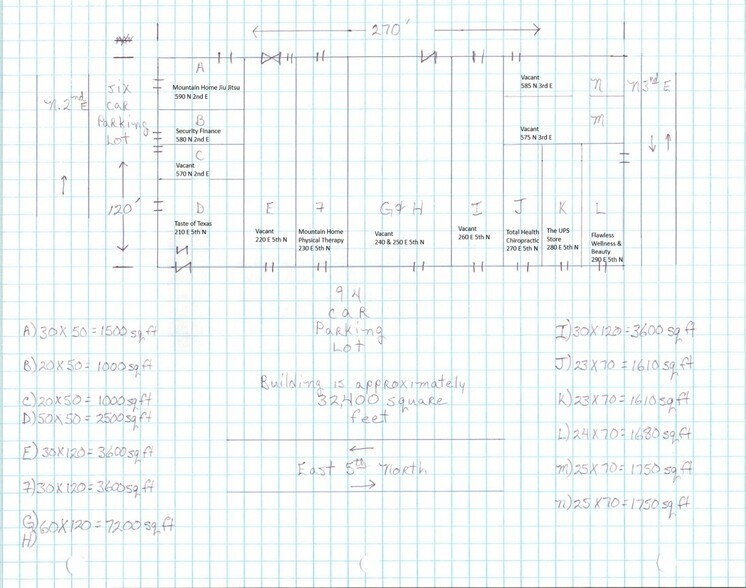 270'
A
Mountain Home Jiu Jitsu
590 N 2nd E
B
Security Finance
580 N 2nd E
C
Vacant
570 N 2nd E
D
Taste of Texas
210 E 5th N
E
Vacant
220 E 5th N
7
Mountain Home
Physical Therapy
230 E 5th N
G & H
Vacant
240 & 250 E 5th N
I
Vacant
260 E 5th N
J
Total Health
Chiropractic
270 E 5th N
K
The UPS
Store
280 E 5th N
L
Flawless
Wellness &
Beauty
290 E 5th N
Vacant
585 N 3rd E
n
Vacant
575 N 3rd E
m
n. 2nd E
Six
Car
Parking
Lot
120'
n 3rd E
94
Car
Parking
Lot
Building is approximately
32,400 square
feet
East 5th north
A) 30 x 50 = 1500 sq ft
B) 20 x 50 = 1000 sq ft
C) 20 x 50 = 1000 sq ft
D) 50 x 50 = 2500 sq ft
E) 30 x 120 = 3600 sq ft
7) 30 x 120 = 3600 sq ft
G)
H) 60 x 120 = 7200 sq ft
I) 30 x 120 = 3600 sq ft
J) 23 x 70 = 1610 sq ft
K) 23 x 70 = 1610 sq ft
L) 24 x 70 = 1680 sq ft
m) 25 x 70 = 1750 sq ft
n) 25 x 70 = 1750 sq ft